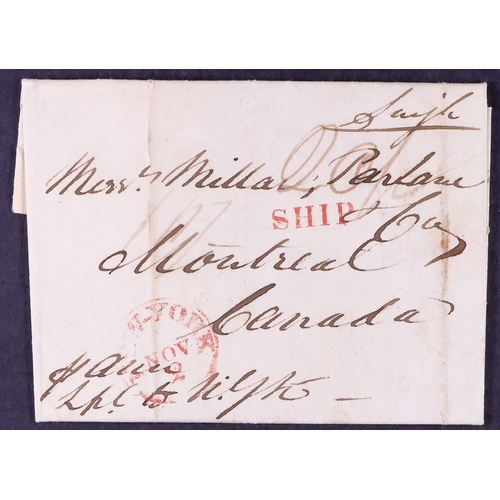 Single
Messrs Millar, Parlane
& Co
SHIP
Montreal
Canada
N-YORK
NOV
Lpl to N. Yk